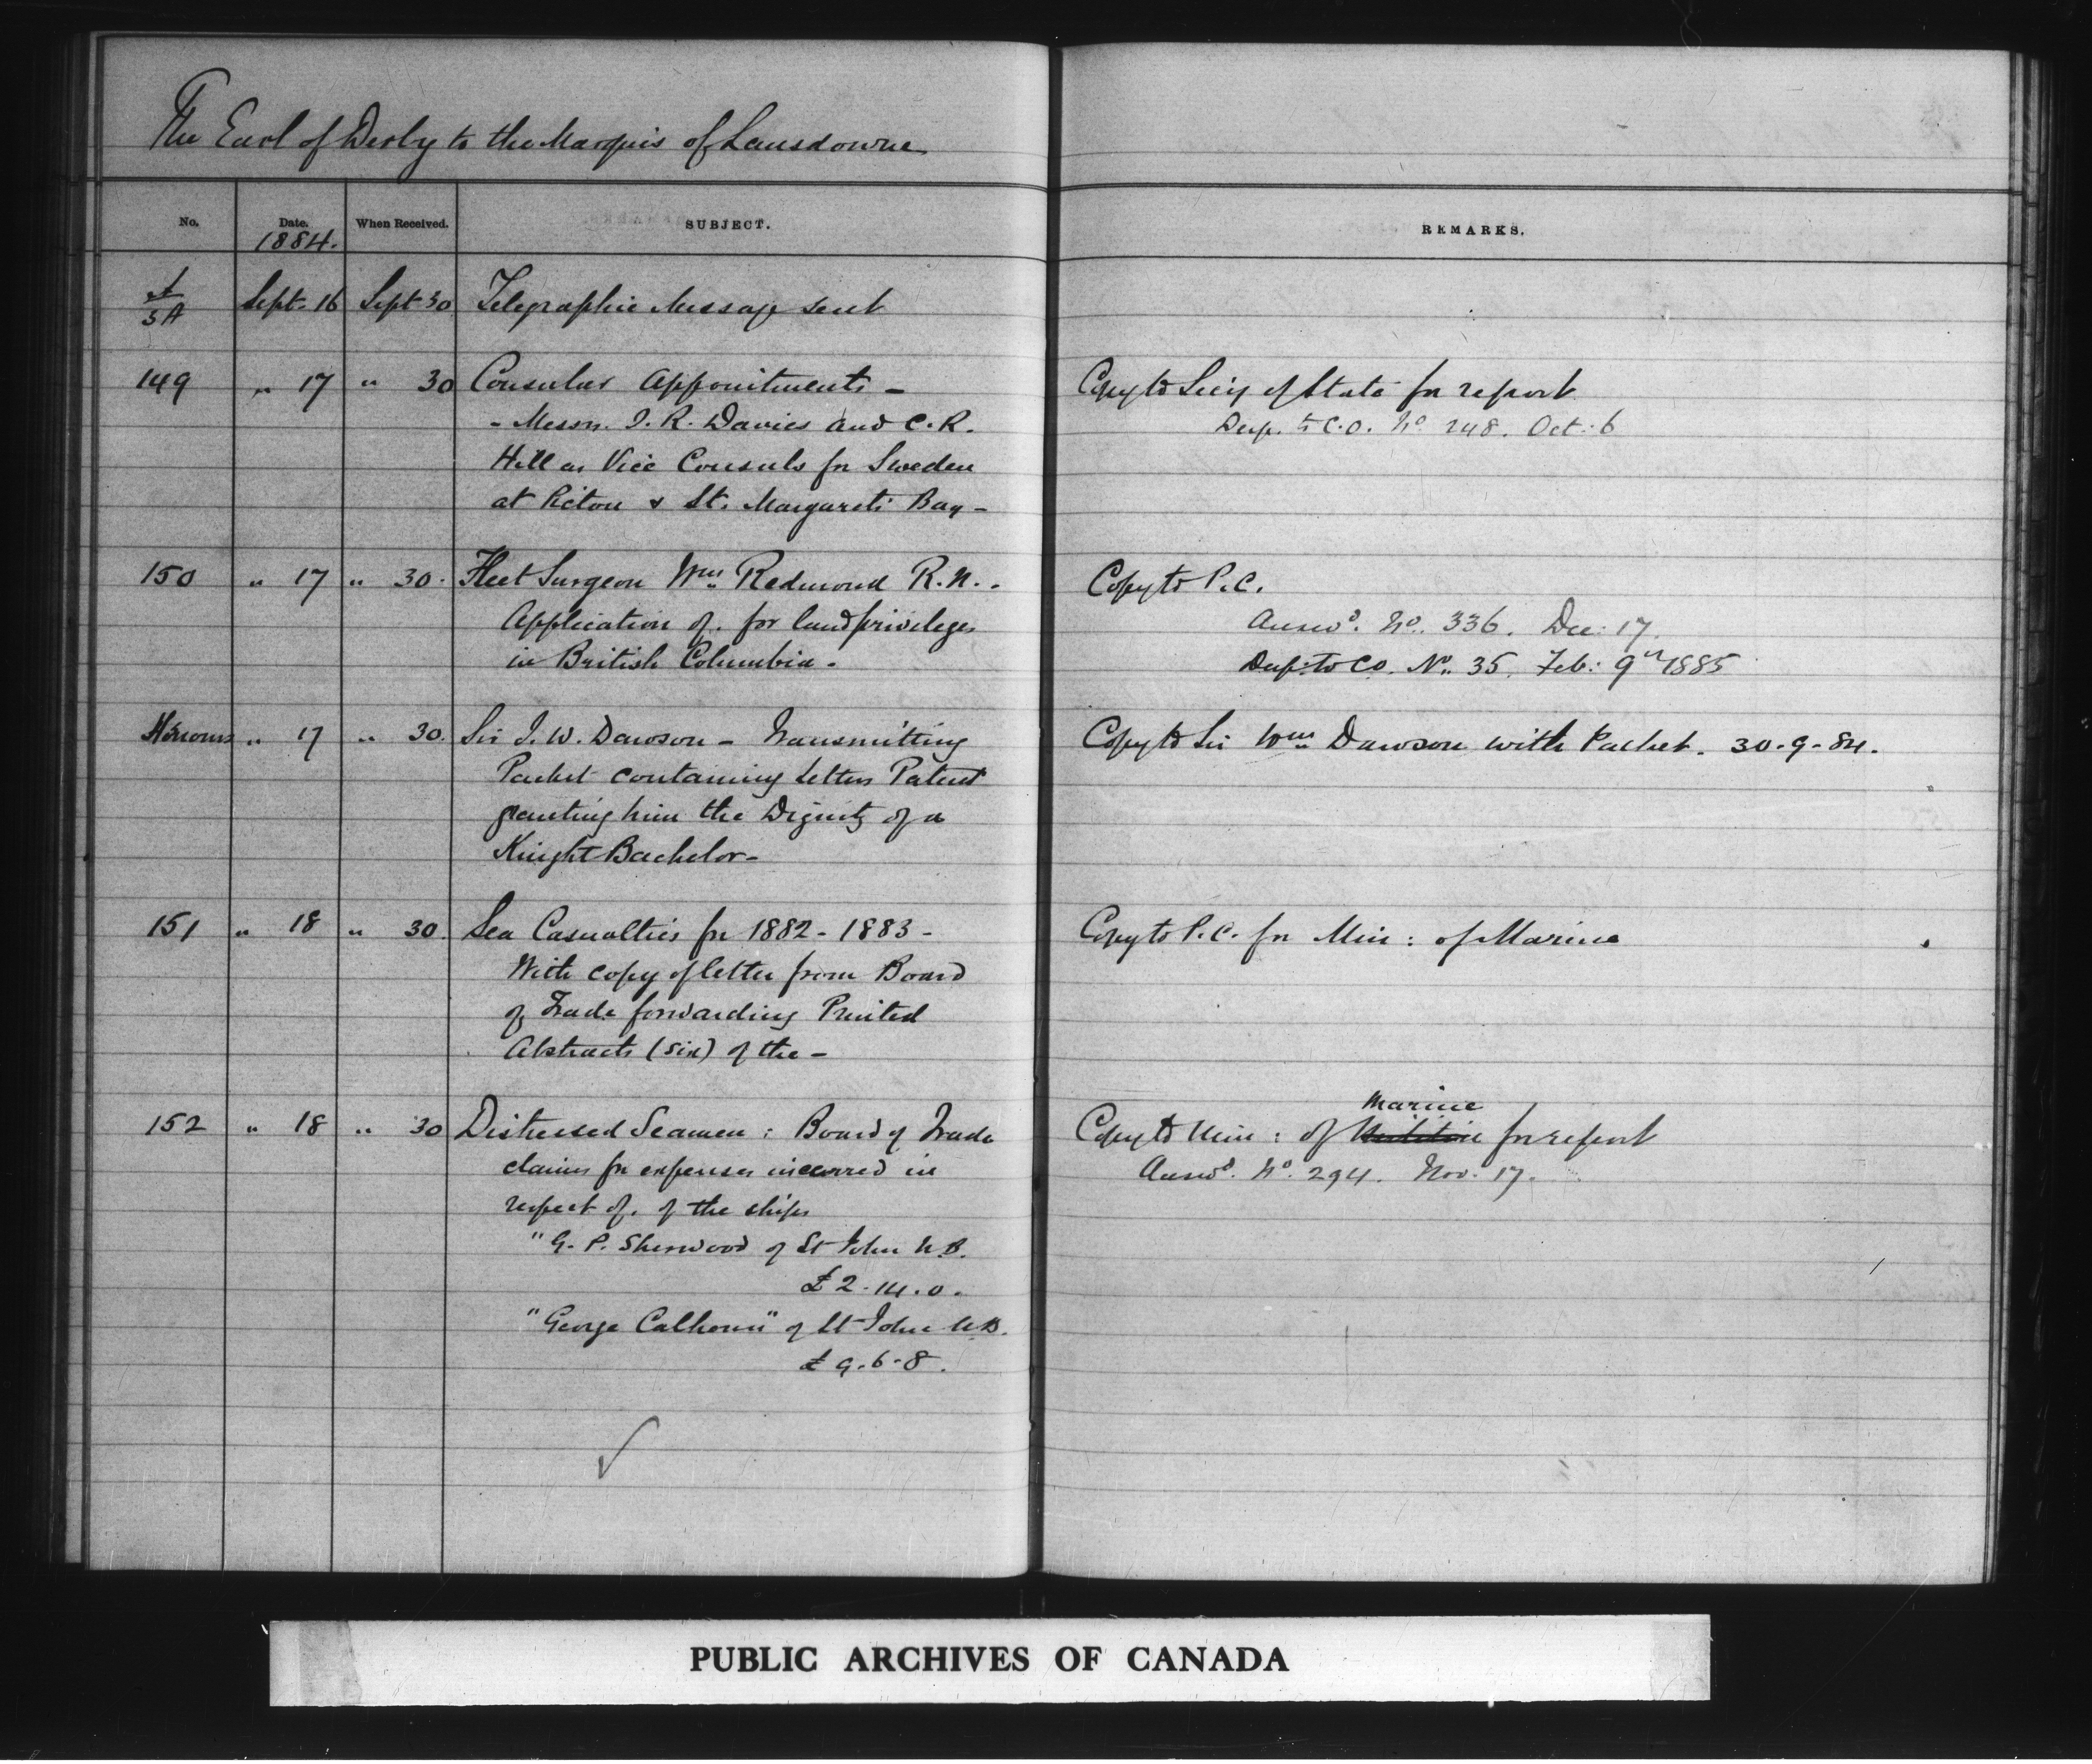 The Earl of Derby to the Marquis of Lansdowne
No. Date. When Received. SUBJECT. REMARKS.
1884.
5A Sept. 16 Sept 30 Telegraphic Message sent
149 " 17 " 30 Consular Appointments – Copy to Secy of State for report
- Messrs. I. R. Davies and C. R. Desp. to C.O. No. 248. Oct: 6
Hill as Vice Consuls for Sweden
at Pictou & St. Margarets Bay –
150 " 17 " 30. Fleet Surgeon Wm Redmond R.N. - Copy to P.C.
Application of. for land privileges Answd. No. 336. Dec: 17.
in British Columbia. Desp: to CO. No. 35. Feb: 9th 1885
Honours " 17 " 30. Sir J. W. Dawson – Transmitting Copy to Sir Wm Dawson with Packet. 30-9-84.
Packet containing Letters Patent
granting him the Dignity of a
Knight Bachelor –
151 " 18 " 30. Sea Casualties for 1882 - 1883 - Copy to P.C. for Min: of Marine
With copy of letter from Board
of Trade forwarding Printed
Abstracts (six) of the –
152 " 18 " 30 Distressed Seamen: Board of Trade Copy to Min: of Marine for report
claims for expenses incurred in Answd. No. 294. Nov: 17.
respect of. of the ships
"G. P. Sherwood of St John N.B.
£2.14.0.
"George Calhoun" of St John N.B.
£9.6.8.
PUBLIC ARCHIVES OF CANADA